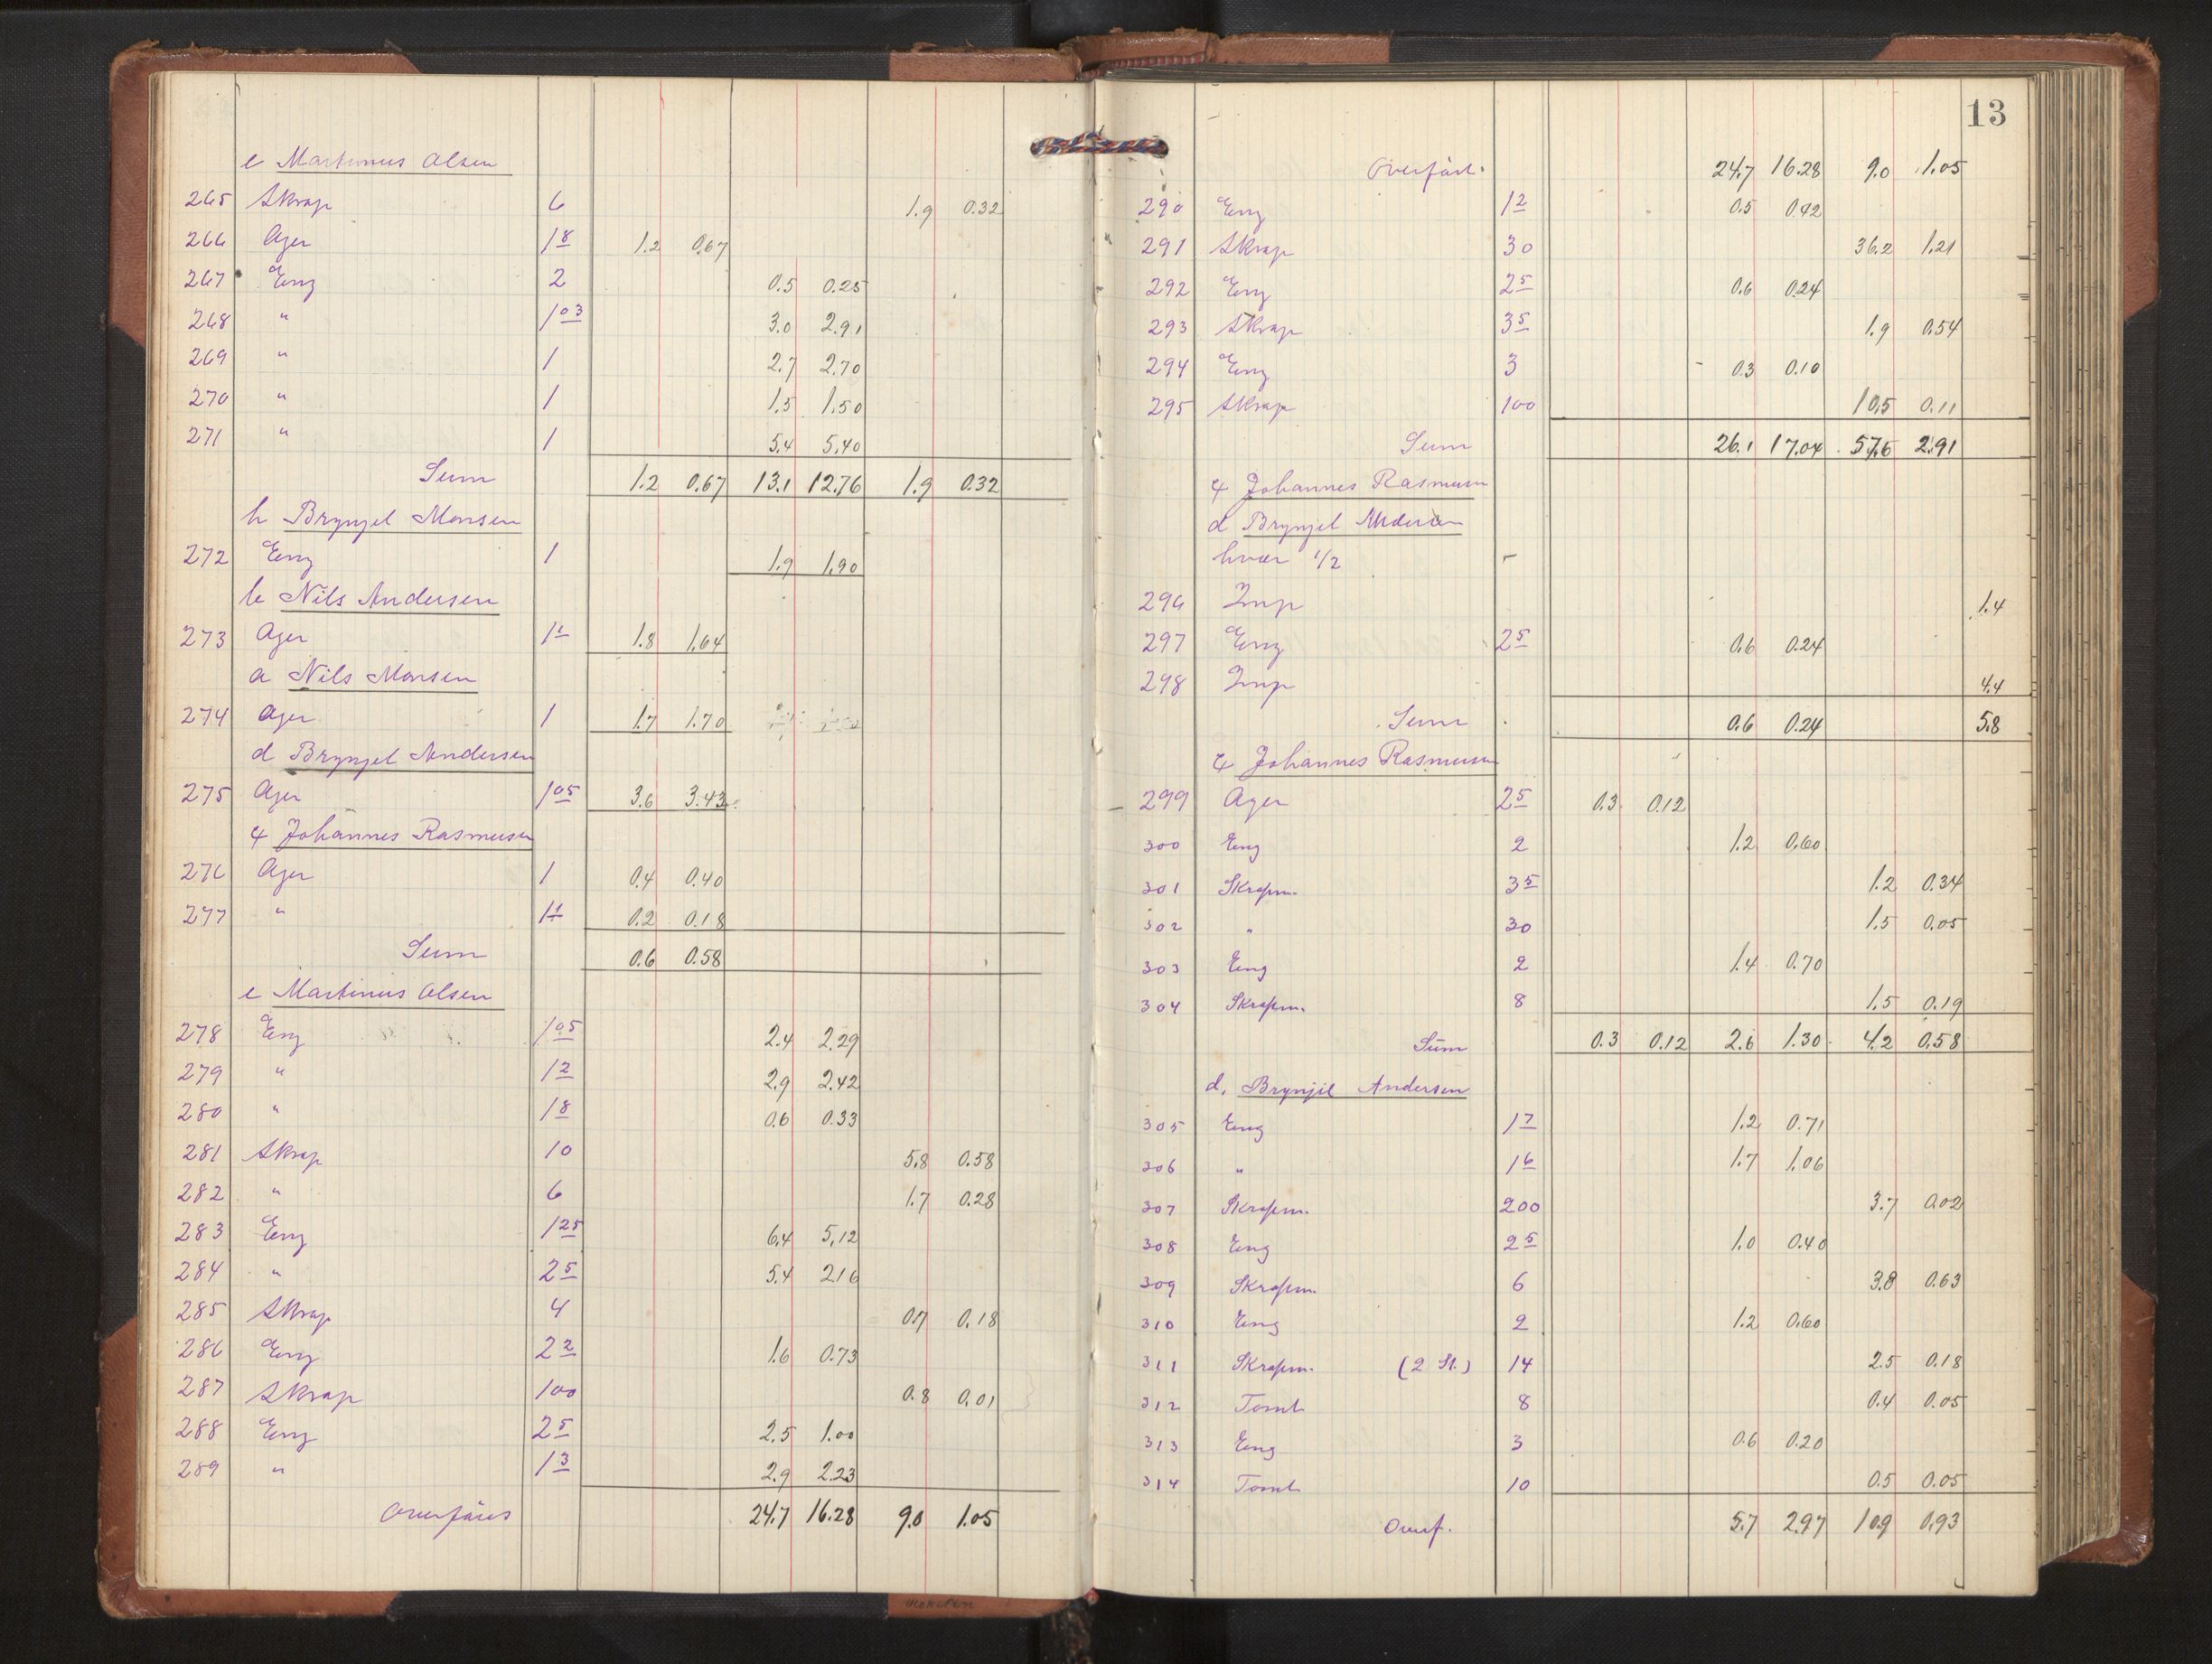 e Martinus Olsen
265 Skrap 6 1.9 0.32
266 Ager 1 8 1.2 0.67
267 Eng 2 0.5 0.25
268 " 1 03 3.0 2.91
269 " 1 2.7 2.70
270 " 1 1.5 1.50
271 " 1 5.4 5.40
Sum 1.2 0.67 13.1 12.76 1.9 0.32
h Brynjel Monsen
272 Eng 1 1.9 1.90
b Nils Andersen
273 Ager 1 1 1.8 1.64
a Nils Monsen
274 Ager 1 1.7 1.70
d Brynjel Andersen
275 Ager 1 05 3.6 3.43
Johannes Rasmusen
276 Ager 1 0.4 0.40
277 " 1 1 0.2 0.18
Sum 0.6 0.58
e Martinus Olsen
278 Eng 1 05 2.4 2.29
279 " 1 2 2.9 2.42
280 " 1 8 0.6 0.33
281 Skrap 10 5.8 0.58
282 " 6 1.7 0.28
283 Eng 1 25 6.4 5.12
284 " 2 5 5.4 2.16
285 Skrap 4 0.7 0.18
286 Eng 2 2 1.6 0.73
287 Skrap 100 0.8 0.01
288 Eng 2 5 2.5 1.00
289 " 1 3 2.9 2.23
Overføres 24.7 16.28 9.0 1.05
13
Overført. 24.7 16.28 9.0 1.05
290 Eng 1 2 0.5 0.42
291 Skrap 30 36.2 1.21
292 Eng 2 5 0.6 0.24
293 Skrap 3 5 1.9 0.54
294 Eng 3 0.3 0.10
295 Skrap 100 10.5 0.11
Sum 26.1 17.04 57.6 2.91
Johannes Rasmusen
d Brynjel Andersen
hver 1/2
296 Imp 1.4
297 Eng 2 5 0.6 0.24
298 Imp 4.4
Sum 0.6 0.24 5.8
Johannes Rasmusen
299 Ager 2 5 0.3 0.12
300 Eng 2 1.2 0.60
301 Skrapm. 3 5 1.2 0.34
302 " 30 1.5 0.05
303 Eng 2 1.4 0.70
304 Skrapm. 8 1.5 0.19
Sum 0.3 0.12 2.6 1.30 4.2 0.58
d. Brynjil Andersen
305 Eng 1 7 1.2 0.71
306 " 1 6 1.7 1.06
307 Skrapm. 200 3.7 0.02
308 Eng 2 5 1.0 0.40
309 Skrapm. 6 3.8 0.63
310 Eng 2 1.2 0.60
311 Skrapm. (2 St.) 14 2.5 0.18
312 Tomt 8 0.4 0.05
313 Eng 3 0.6 0.20
314 Tomt 10 0.5 0.05
Overf. 5.7 2.97 10.9 0.93